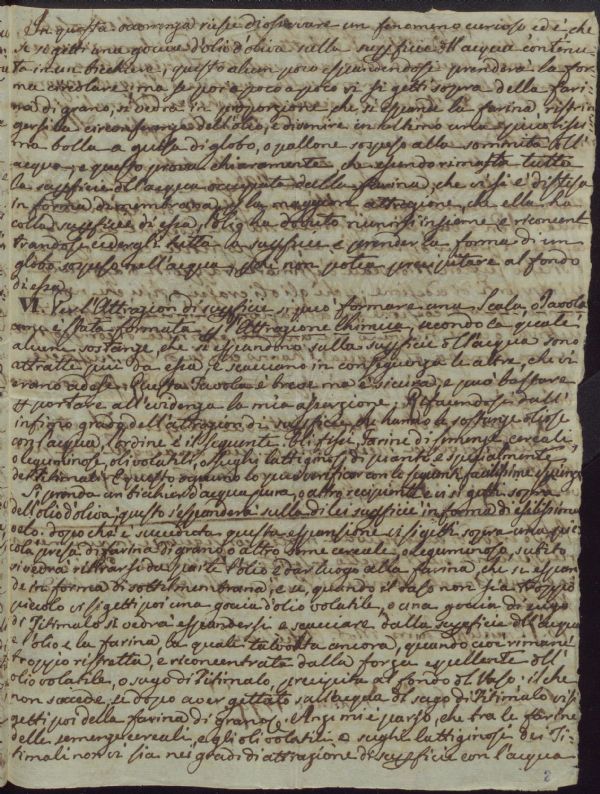 In questa occorrenza riesce d'osservare un fenomeno curioso ed è, che
se si getti una goccia d'olio d'oliva sulla superficie dell'acqua contenu-
ta in un bicchiere; questo alcun poco espandendosi prenderà la for-
ma circolare; ma se poi a poco a poco vi si getti sopra della fari-
na di grano, si vedrà in proporzione che si espande la farina restrin-
gersi la circonferenza dell'olio, e divenire in ultimo una piccolissi-
ma bolla a guisa di globo, o pallone sospeso alla sommità dell'
acqua; e questo prova chiaramente che essendo rimasta tutta
la superficie dell'acqua occupata dalla farina, che vi si è distesa
in forma di membrana, p la maggiore attrazione, che ella ha
colla superficie di essa, l'olio ha dovuto riunirsi insieme e riconcen-
trandosi cedergli tutta la superficie e prender la forma di un
globo sospeso nell'acqua, poi non potea precipitare al fondo
di essa.
VI. Per l'Attrazion di superficie si può formare una Scala, Tavola
come è stata formata p l'Attrazione Chimica, secondo la quale
alcune sostanze, che si espandono sulla superficie dell'acqua sono
attratte più da essa, e scacciano in conseguenza le altre, che vi
erano adese. Questa Tavola è breve ma è sicura, e può bastare
p portare all'evidenza la mia asserzione; Rifacendosi dall'
infimo grado dell'attrazion di superficie che hanno le sostanze oliose
coll'acqua, l'ordine è il seguente. Oli fissi, farine di semenze cereali,
o leguminose, oli volatili, o sughi lattiginosi di piante e specialmente
de' Titimali. E questo ognuno lo può verificar con le seguenti facilissime esperienze
Si prenda un bicchier d'acqua pura, o altro recipiente e vi si getti sopra
dell'olio d'oliva; questo s'espanderà sulla di lei superficie in forma di sottilissimo
velo: dopo che è succeduta questa espansione vi si getti sopra una pic-
cola presa di farina di grano, o altro seme cereale, o leguminoso, subito
si vedrà ritirarsi da parte l'olio e dar luogo alla farina, che si espan-
de in forma di sottil membrana; e se, quando il vaso non sia troppo
piccolo vi si getti poi una goccia d'olio volatile, o una goccia di sugo
di Titimalo si vedrà espandersi e scacciare dalla superficie dell'acqua
e l'olio e la farina, la quale talvolta ancora, quando cioè rimane
troppo ristretta, e riconcentrata dalla forza espellente dell'
olio volatile, o sugo di Titimalo, precipita al fondo del Vaso: il che
non succede se dopo aver gettato sull'acqua il sugo di Titimalo vi si
getti poi della farina di grano. Anzi mi è parso, che tra le farine
delle semenze cereali, e gli oli volatili e sughi lattiginosi dei Ti-
timali non vi sia nei gradi di attrazione di superficie con l'acqua
2